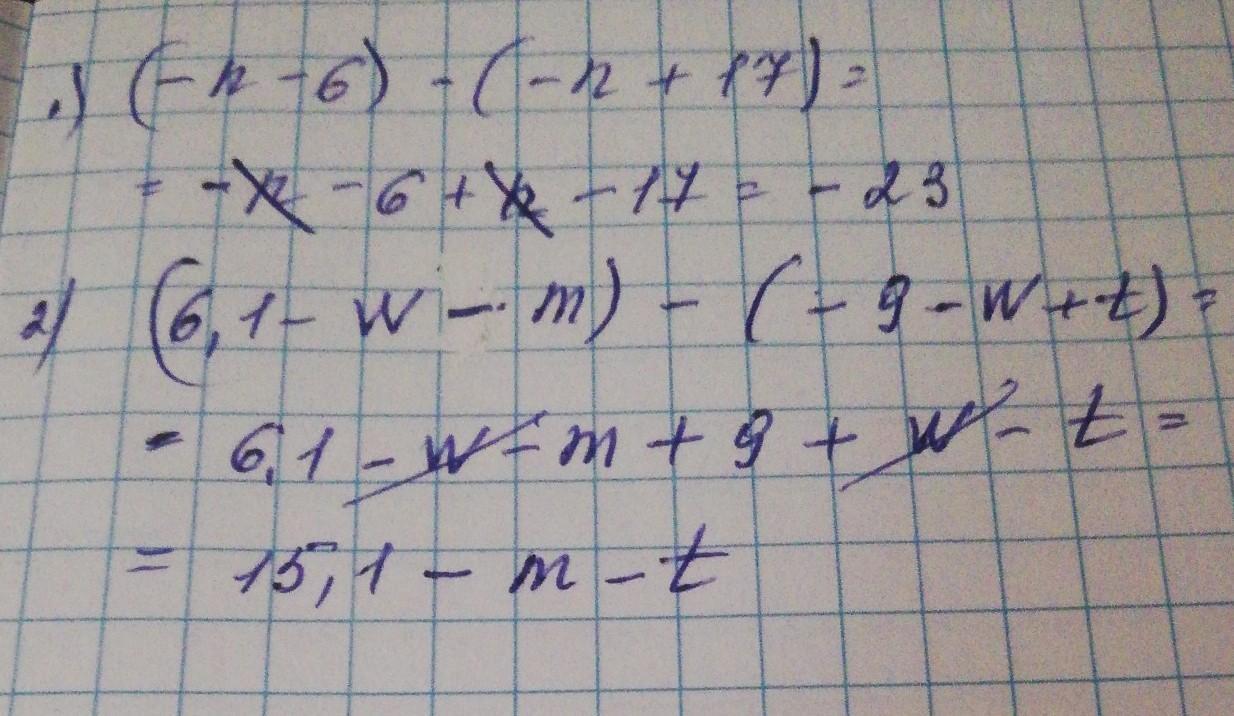 1) (-n-6) - (-n + 17) =
= -n - 6 + n - 17 = - 23
2) (6,1 - w - m) - (- 9 - w + t) =
= 6,1 - w - m + 9 + w - t =
= 15,1 - m - t